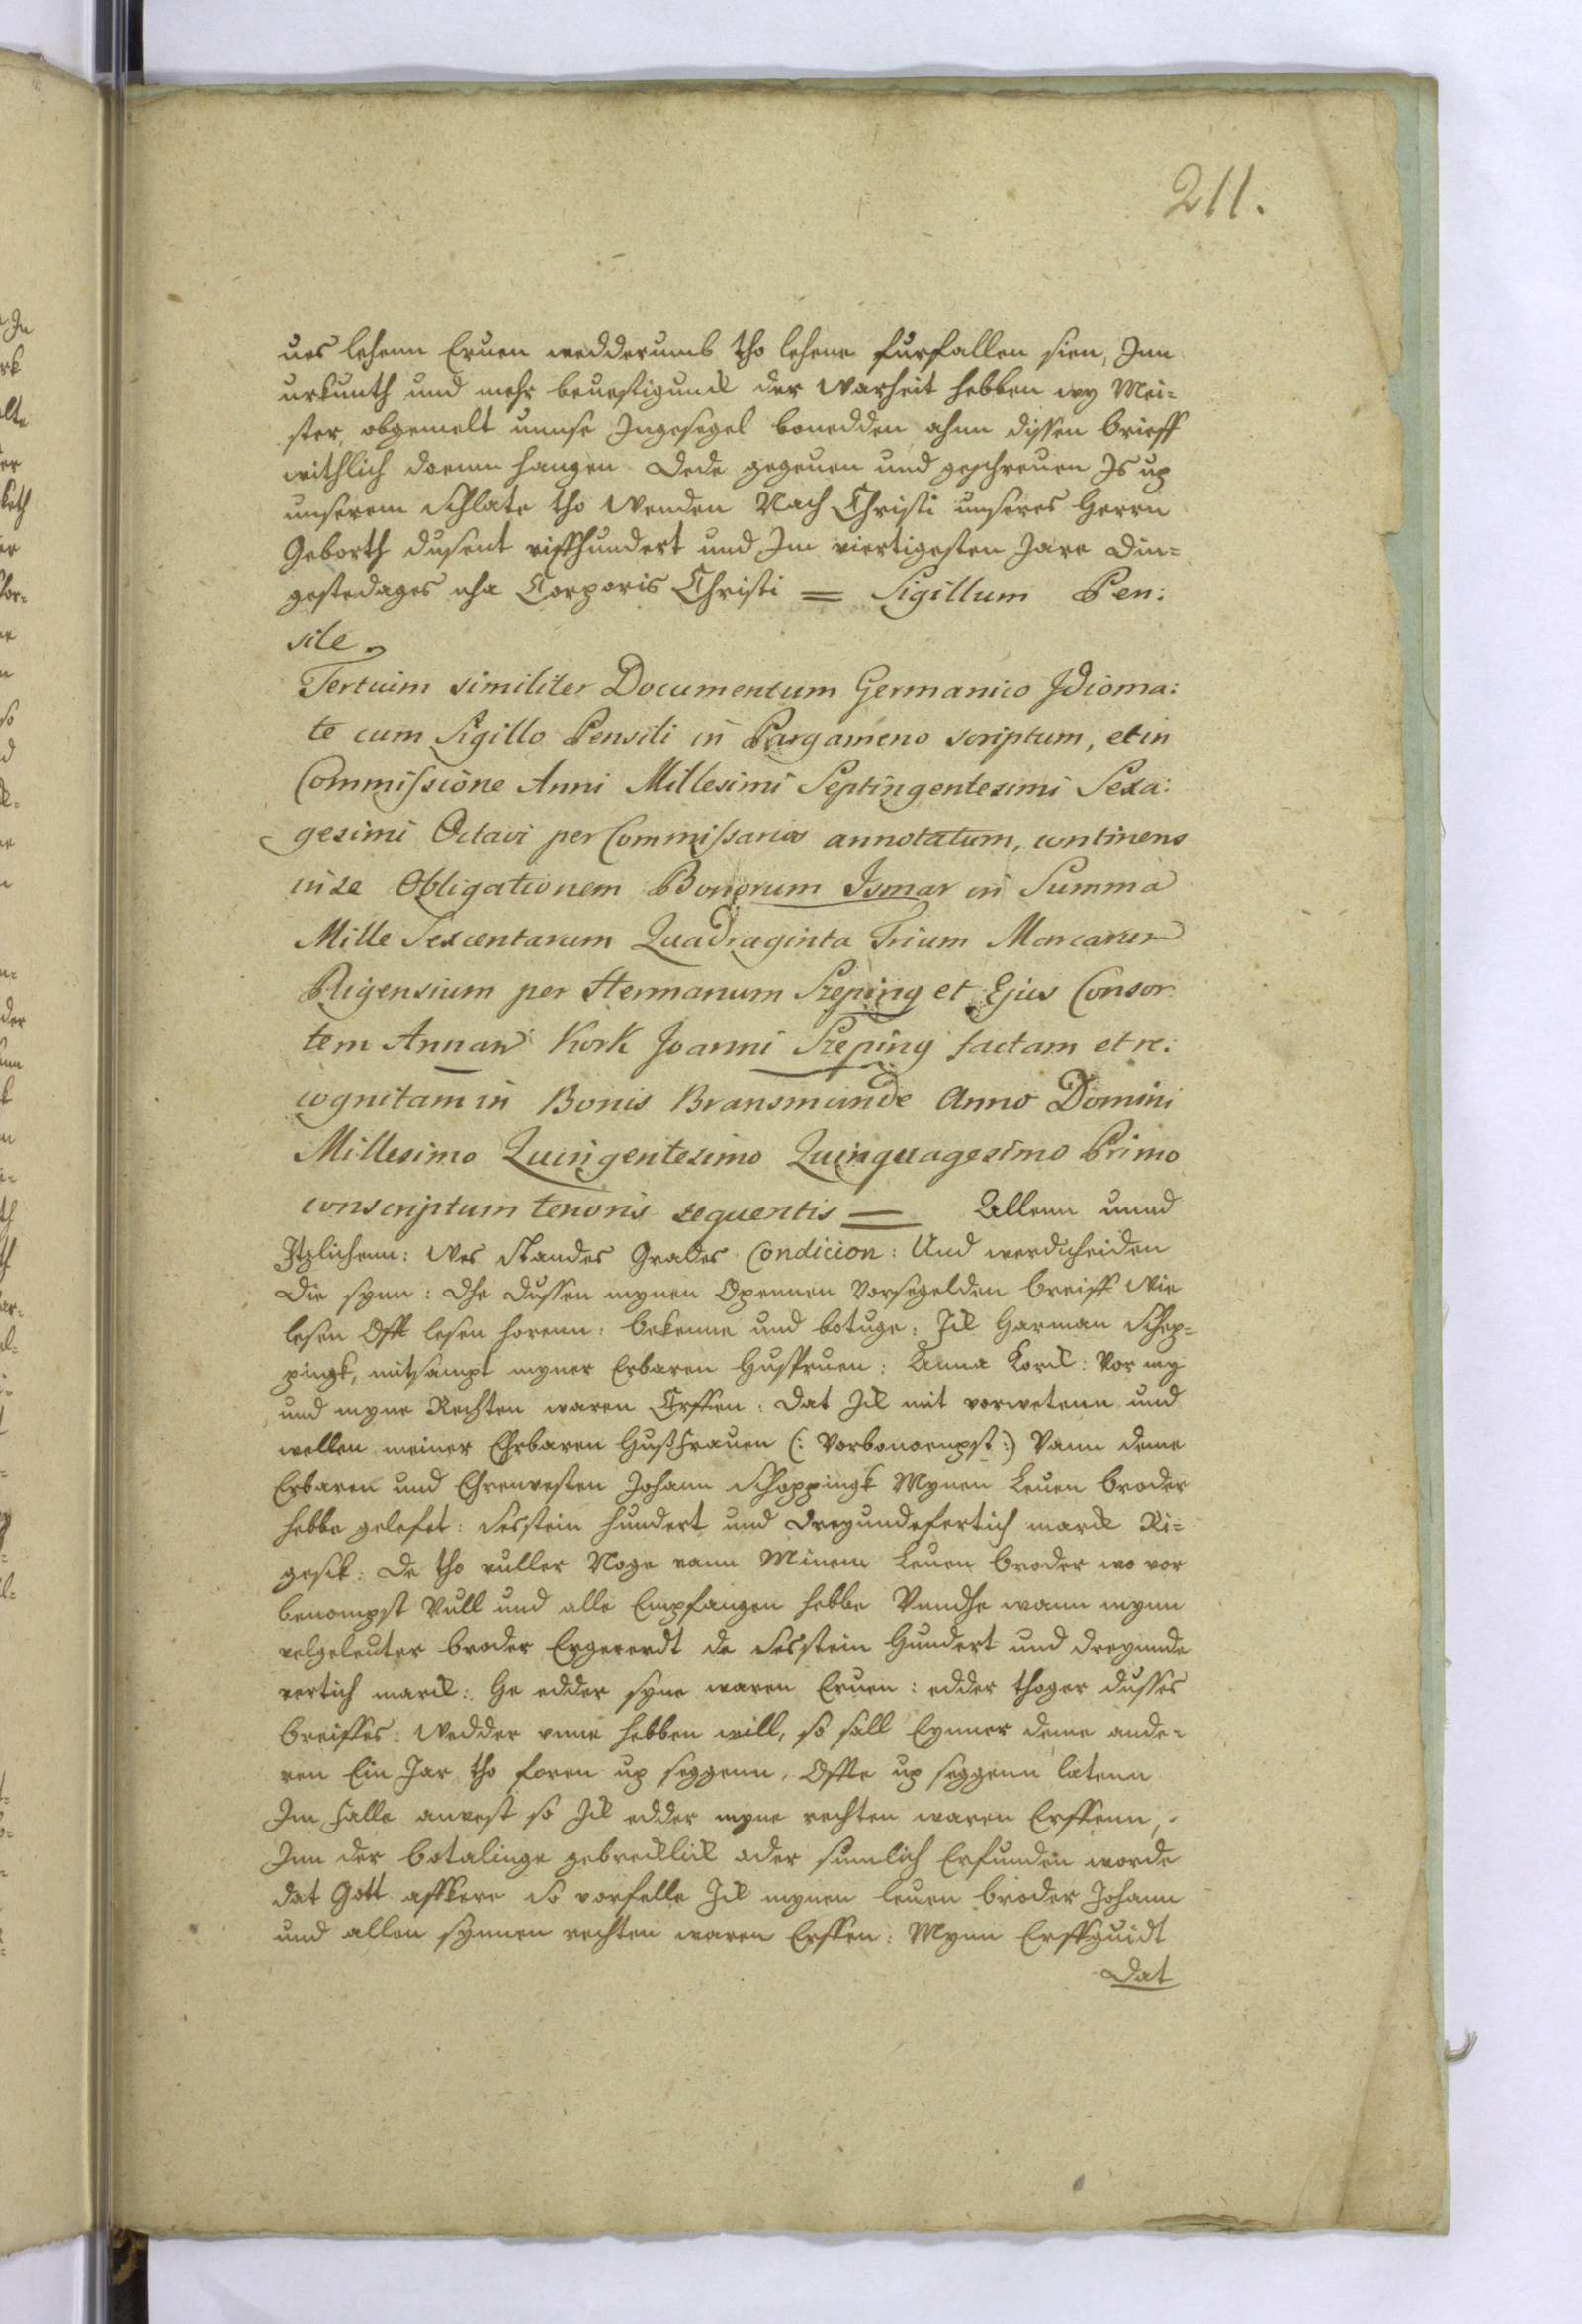 211.
ues lehenn Eruen wedderumb tho lehene furfallen sien, Inn
urkunth und mehr beuestigunck der Warheit hebben wy Mei=
ster obgemelt unnse Ingesegel bonedden ahnn dissen brieff
withlich doenn hangen Dede gegeuen und geschreuen Is up
unserem Schlate tho Wenden Nach Christi unseres Herrn
Geborth dusent viffhundert und Im viertigesten Jare Din=
gestedages nha Corporis Christi = Sigillum Pen:
sile.
Tertium similiter Documentum Germanico Idioma:
te cum Sigillo Pensili in Pargameno scriptum, et in
Commissione Anni Millesimi Septingentesimi Sexa:
gesimi Octavi per Commissarios annotatum, continens
in se Obligationem Bonorum Ismar in Summa
Mille Sexcentarum Quadraginta Trium Marcarum
Rigensium per Hermanum Szeping et Ejus Consor:
tem Annam Kork Joanni Szeping factam et re:
cognitam in Bonis Bransmunde Anno Domini
Millesimo Quingentesimo Quinquagesimo Primo
conscriptum tenoris sequentis = Allenn unnd
Itzlichenn: Wes Standes Grades Condicion: Und werdicheiden
Die synn: Dhe dussen mynen Opennen Vorsegelden breiff Wie
lesen Offt lesen horenn: bekenne und botuge: Ick Harman Schep=
pingk, mitsampt myner Erbaren Husfruen: Anna Korck: Vor my
und myne Rechten waren Erffen: Dat Ick mit vorwetenn und
wellen meiner Ehrbaren Hußfrauen (: Vorbonoempst :) Vann deme
Erbaren und Ehrenvesten Johann Schoppingk Mynen Leuen broder
hebbe gelefet: Sesstein hundert und dreyundefertich marck Ri=
gesk: De tho vuller Noge vann Minem Leuen broder wo vor
benompst Vull und alle Empfangen hebbe Vnndhe wann mynn
velgeleuter broder de Sesstein Hundert und dreyunde
vertich marck: He edder syne waren Eruen: edder thoger dusses
breiffes: Wedder vmme hebben will, so sall Eynner deme ande=
ren Ein Jar tho foren up seggenn, Offte up seggenn latenn
Im Falle anvest so Ick edder myne rechten waren Erffenn,
Inn der botalinge gebrecklick oder sumlich Erfunden worde
dat Gott affkere So vorfelle Ick mynen leuen broder Johann
und allen synnen rechten waren Erffen: Mynn Erffguidt
Dat